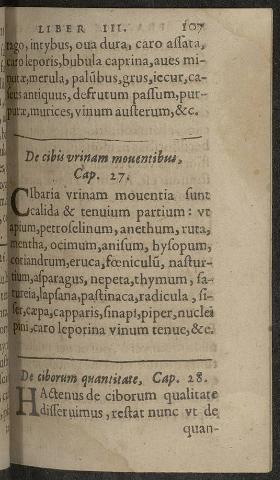 LIBER III. 107
rago, intybus, oua dura, caro assata,
caro leporis, bubula caprina, aues mi-
nutæ, merula, palũbus, grus, iecur, ca-
seus antiquus, defrutum passum, pur-
puræ, murices, vinum austerum, &c.
De cibis vrinam mouentibus,
Cap. 27.
CIbaria vrinam mouentia sunt
calida & tenuium partium: vt
apium, petroselinum, anethum, ruta,
mentha, ocimum, anisum, hysopum,
coriandrum, eruca, fœniculũ, nastur-
tium, asparagus, nepeta, thymum, sa-
tureia, lapsana, pastinaca, radicula, si-
ser, cæpa, capparis, sinapi, piper, nuclei
pini, caro leporina vinum tenue, &c.
De ciborum quantitate, Cap. 28.
HActenus de ciborum qualitate
disseruimus, restat nunc vt de
quan-